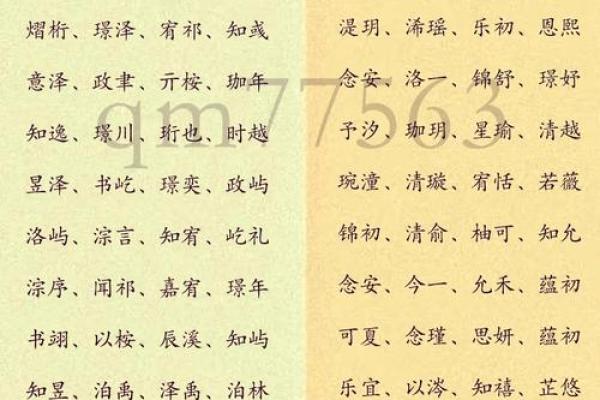 熠桁、璟泽、宥祁、知彧
意泽、政聿、亓桉、珈年
知逸、璟川、珩也、时越
昱泽、书屹、璟奕、政屿
洛屿、淙言、知宥、屹礼
淙序、闻祁、嘉宥、璟年
书翊、以桉、辰溪、知屿
知昱、泊禹、泽禹、泊林
湜玥、浠瑶、乐初、恩熙
念安、洛一、锦舒、璟妤
予汐、珈玥、星瑜、清越
琬潼、清璇、宥恬、若薇
锦初、清俞、柚可、知允
念安、今一、允禾、蕴初
可夏、念瑾、思妍、蕴初
乐宜、以涔、知禧、芷悠
qm77563